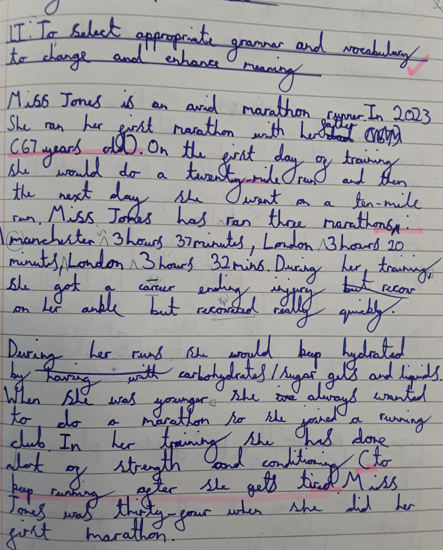 IT: To select appropriate grammar and vocabulary
to change and enhance meaning
Miss Jones is an avid marathon runner. In 2023
She ran her first marathon with her
(67 years old). On the first day of training
she would do a twenty-mile run and then
the next day she went on a ten-mile
run. Miss Jones has ran three marathons
manchester 3 hours 37 minutes, London 3 hours 20
minutes, London 3 hours 32 mins. During her training
she got a career ending injury but recov
on her ankle but recovered really quickly.
During her runs she would keep hydrated
by having with carbohydrates/sugar gels and liquids.
When she was younger she always wanted
to do a marathon so she joined a running
club. In her training she has done
alot of strength and conditioning (to
keep running after she gets tired Miss
Jones was thirty-four when she did her
first marathon.